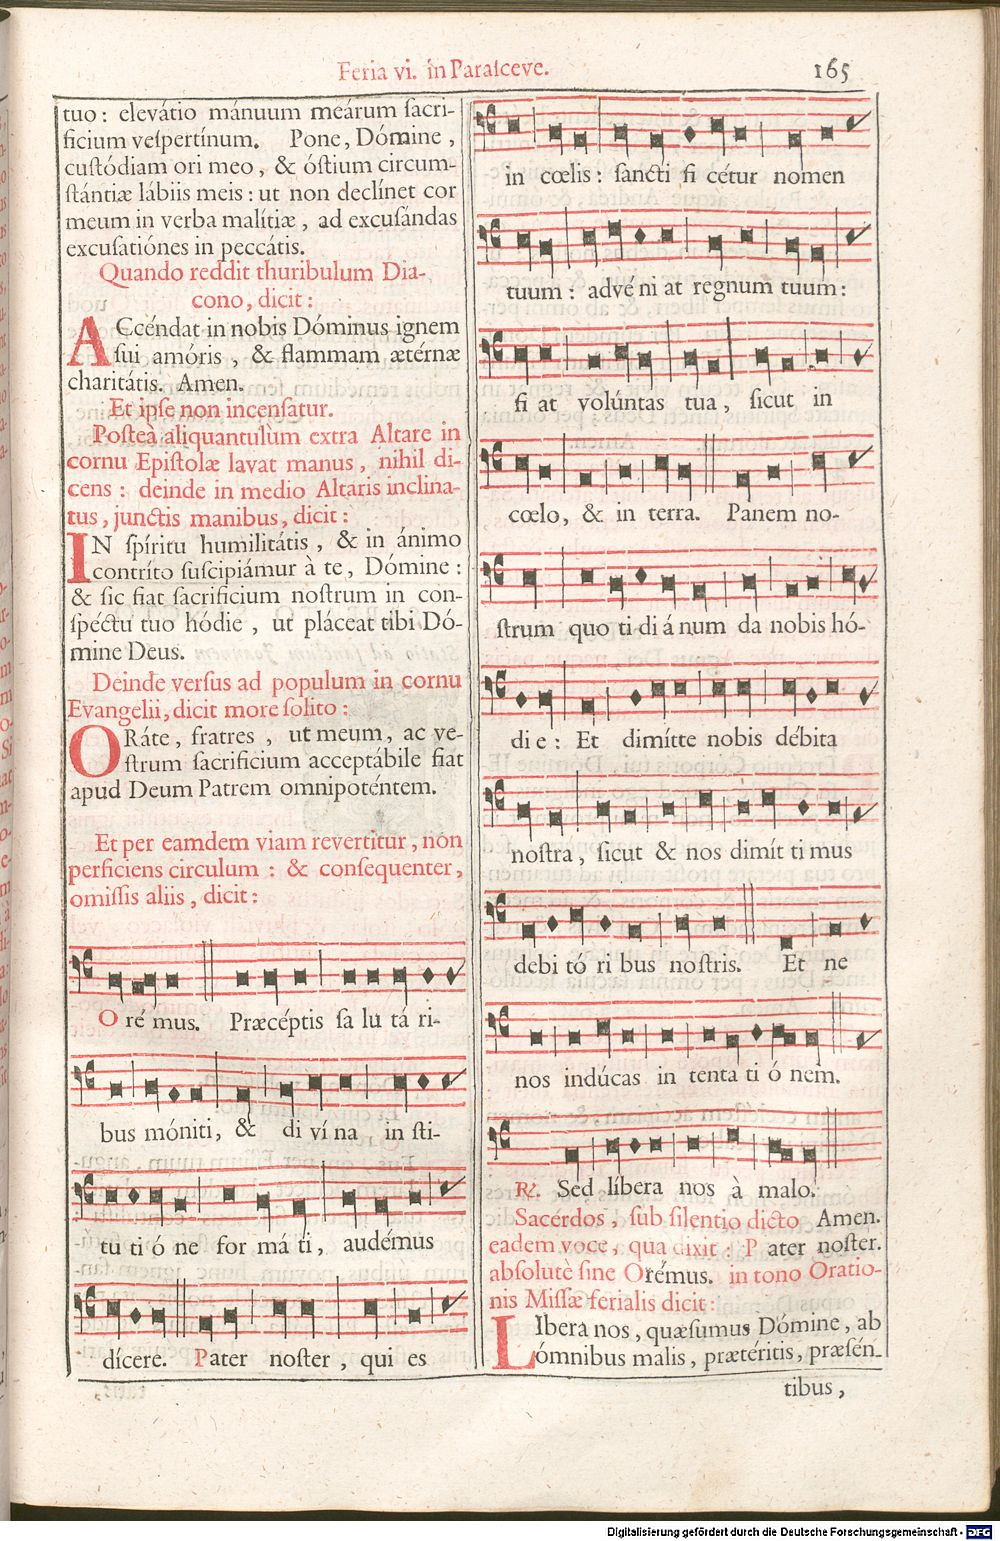 Feria vi. in Parasceve.
165
tuo: elevátio mánuum meárum sacri-
ficium vespertínum. Pone, Dómine,
custódiam ori meo, & óstium circum-
stántiæ lábiis meis: ut non declínet cor
meum in verba malítiæ, ad excusándas
excusatiónes in peccátis.
Quando reddit thuribulum Dia-
cono, dicit:
ACcéndat in nobis Dóminus ignem
sui amóris, & flammam ætérnæ
charitátis. Amen.
Et ipse non incensatur.
Posteà aliquantulum extra Altare in
cornu Epistolæ lavat manus, nihil di-
cens: deinde in medio Altaris inclina-
tus, junctis manibus, dicit:
IN spíritu humilitátis, & in ánimo
contríto suscipiámur à te, Dómine:
& sic fiat sacrificium nostrum in con-
spéctu tuo hódie, ut pláceat tibi Dó-
mine Deus.
Deinde versus ad populum in cornu
Evangelii, dicit more solito:
ORáte, fratres, ut meum, ac ve-
strum sacrificium acceptábile fiat
apud Deum Patrem omnipoténtem.
Et per eamdem viam revertitur, non
perficiens circulum: & consequenter,
omissis aliis, dicit:
O ré mus. Præcéptis sa lu tá ri-
bus móniti, & di ví na in sti-
tu ti ó ne for má ti, audémus
dícere. Pater noster, qui es
in cœlis: sancti fi cétur nomen
tuum: advé ni at regnum tuum:
fi at volúntas tua, sicut in
cœlo, & in terra. Panem no-
strum quo ti di á num da nobis hó-
di e: Et dimítte nobis débita
nostra, sicut & nos dimít ti mus
debi tó ri bus nostris. Et ne
nos indúcas in tenta ti ó nem.
℟. Sed líbera nos à malo.
Sacérdos, sub silentio dicto Amen.
eadem voce, qua dixit: P ater noster.
absolutè sine Orémus. in tono Oratio-
nis Missæ ferialis dicit:
LIbera nos, quæsumus Dómine, ab
ómnibus malis, prætéritis, præsén-
tibus,
Digitalisierung gefördert durch die Deutsche Forschungsgemeinschaft - DFG